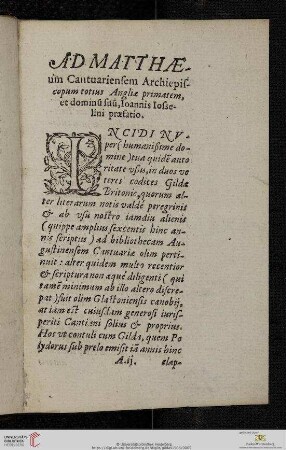 AD MATTHÆ-
um Cantuariensem Archiepis-
copum totius Angliæ primatem,
et dominũ suũ, Ioannis Iosse-
lini præfatio.
INCIDI NV-
per (humanissime do-
mine) tua quidẽ auto
ritate vsus, in duos ve
teres codices Gildæ
Britonis, quorum al-
ter literarum notis valdè peregrinis
& ab vsu nostro iamdiu alienis
(quippe amplius sexcentis hinc an-
nis scriptus) ad bibliothecam Au-
gustinensem Cantuariæ olim perti-
nuit: alter quidem multo recentior
& scriptura non æquè diligenti (qui
tamẽ minimum ab illo altero discre-
pat) fuit olim Glastoniensis cœnobij,
at iam est cuiusdam generosi iuris-
periti Cantiani solius & proprius.
Hos vt contuli cum Gilda, quem Po
lydorus sub prelo emisit iã annis hinc
A.ij. elap-